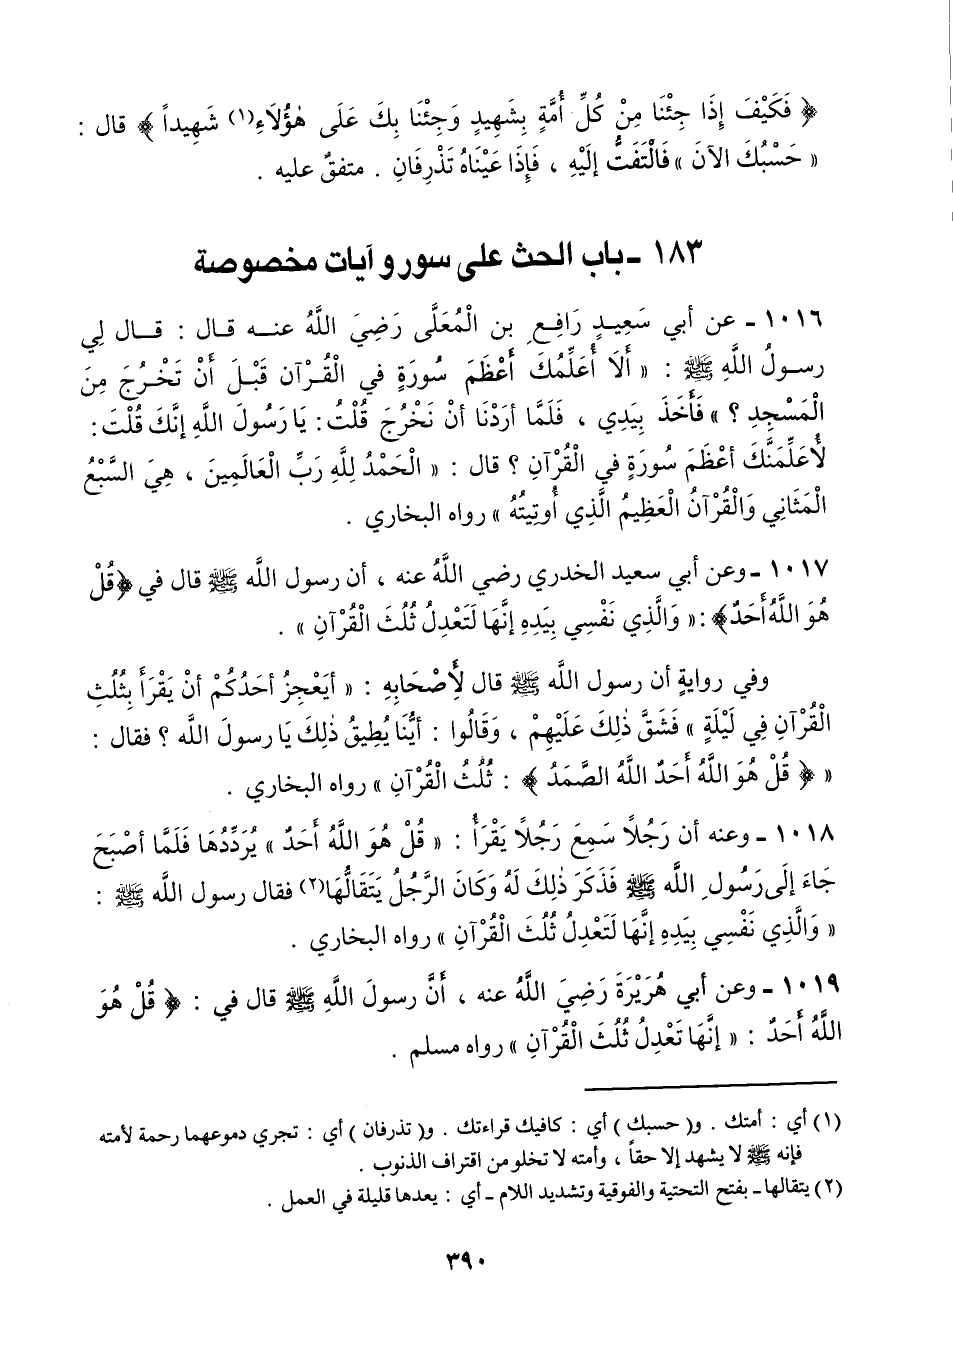 ﴿ فَكَيْفَ إِذَا جِئْنَا مِنْ كُلِّ أُمَّةٍ بِشَهِيدٍ وَجِئْنَا بِكَ عَلَى هٰؤُلَاءِ(١) شَهِيداً ﴾ قال :
« حَسْبُكَ الآنَ » فَالْتَفَتُّ إِلَيْهِ ، فَإِذَا عَيْنَاهُ تَذْرِفَانِ . متفقٌ عليه .
١٨٣ ـ باب الحث على سور وآيات مخصوصة
١٠١٦ ـ عن أبي سَعِيدٍ رَافِعِ بن الْمُعَلَّى رَضِيَ اللَّهُ عنـه قـال : قـال لِي
رسـولُ اللَّهِ ﷺ : « أَلَا أُعَلِّمُكَ أَعْظَمَ سُورَةٍ في الْقُرْآن قَبْـلَ أَنْ تَخْـرُجَ مِنَ
الْمَسْجِدِ ؟ » فَأَخَذَ بِيَدِي ، فَلَمَّا أَرَدْنَا أَنْ نَخْرُجَ قُلْتُ : يَا رَسُولَ اللَّهِ إِنَّكَ قُلْتَ :
لأُعَلِّمَنَّكَ أَعْظَمَ سُورَةٍ في الْقُرْآنِ ؟ قال : « الْحَمْدُ لِلَّهِ رَبِّ الْعَالَمِينَ ، هِيَ السَّبْعُ
الْمَثَانِي وَالْقُرْآنُ الْعَظِيمُ الَّذِي أُوتِيتُهُ » رواه البخاري .
١٠١٧ ـ وعن أبي سعيد الخدري رضي اللَّهُ عنه ، أن رسول اللَّه ﷺ قال في ﴿ قُلْ
هُوَ اللَّهُ أَحَدٌ ﴾ : « وَالَّذِي نَفْسِي بِيَدِهِ إِنَّهَا لَتَعْدِلُ ثُلُثَ الْقُرْآنِ » .
وفي روايةٍ أن رسول اللَّه ﷺ قال لأَصْحَابِهِ : « أَيَعْجِزُ أَحَدُكُمْ أَنْ يَقْرَأَ بِثُلُثِ
الْقُرْآنِ فِي لَيْلَةٍ » فَشَقَّ ذٰلِكَ عَلَيْهِمْ ، وَقَالُوا : أَيُّنَا يُطِيقُ ذٰلِكَ يَا رسولَ اللَّه ؟ فقال :
« ﴿ قُلْ هُوَ اللَّهُ أَحَدٌ اللَّهُ الصَّمَدُ ﴾ : ثُلُثُ الْقُرْآنِ » رواه البخاري .
١٠١٨ ـ وعنه أن رَجُلاً سَمِعَ رَجُلاً يَقْرَأُ : « قُلْ هُوَ اللَّهُ أَحَدٌ » يُرَدِّدُهَا فَلَمَّا أَصْبَحَ
جَاءَ إِلَى رَسُولِ اللَّه ﷺ فَذَكَرَ ذٰلِكَ لَهُ وَكَانَ الرَّجُلُ يَتَقَالُّهَا(٢) فقال رسول اللَّه ﷺ :
« وَالَّذِي نَفْسِي بِيَدِهِ إِنَّهَا لَتَعْدِلُ ثُلُثَ الْقُرْآنِ » رواه البخاري .
١٠١٩ ـ وعن أبي هُرَيْرَةَ رَضِيَ اللَّهُ عنه ، أَنَّ رسولَ اللَّهِ ﷺ قال في : ﴿ قُلْ هُوَ
اللَّهُ أَحَدٌ : « إِنَّهَا تَعْدِلُ ثُلُثَ الْقُرْآنِ » رواه مسلم .
(١) أي : أمتك . و( حسبك ) أي : كافيك قراءتك . و( تذرفان ) أي : تجري دموعهما رحمة لأمته
فإنه ﷺ لا يشهد إلا حقاً ، وأمته لا تخلو من اقتراف الذنوب .
(٢) يتقالها ـ بفتح التحتية والفوقية وتشديد اللام ـ أي : يعدها قليلة في العمل .
٣٩٠